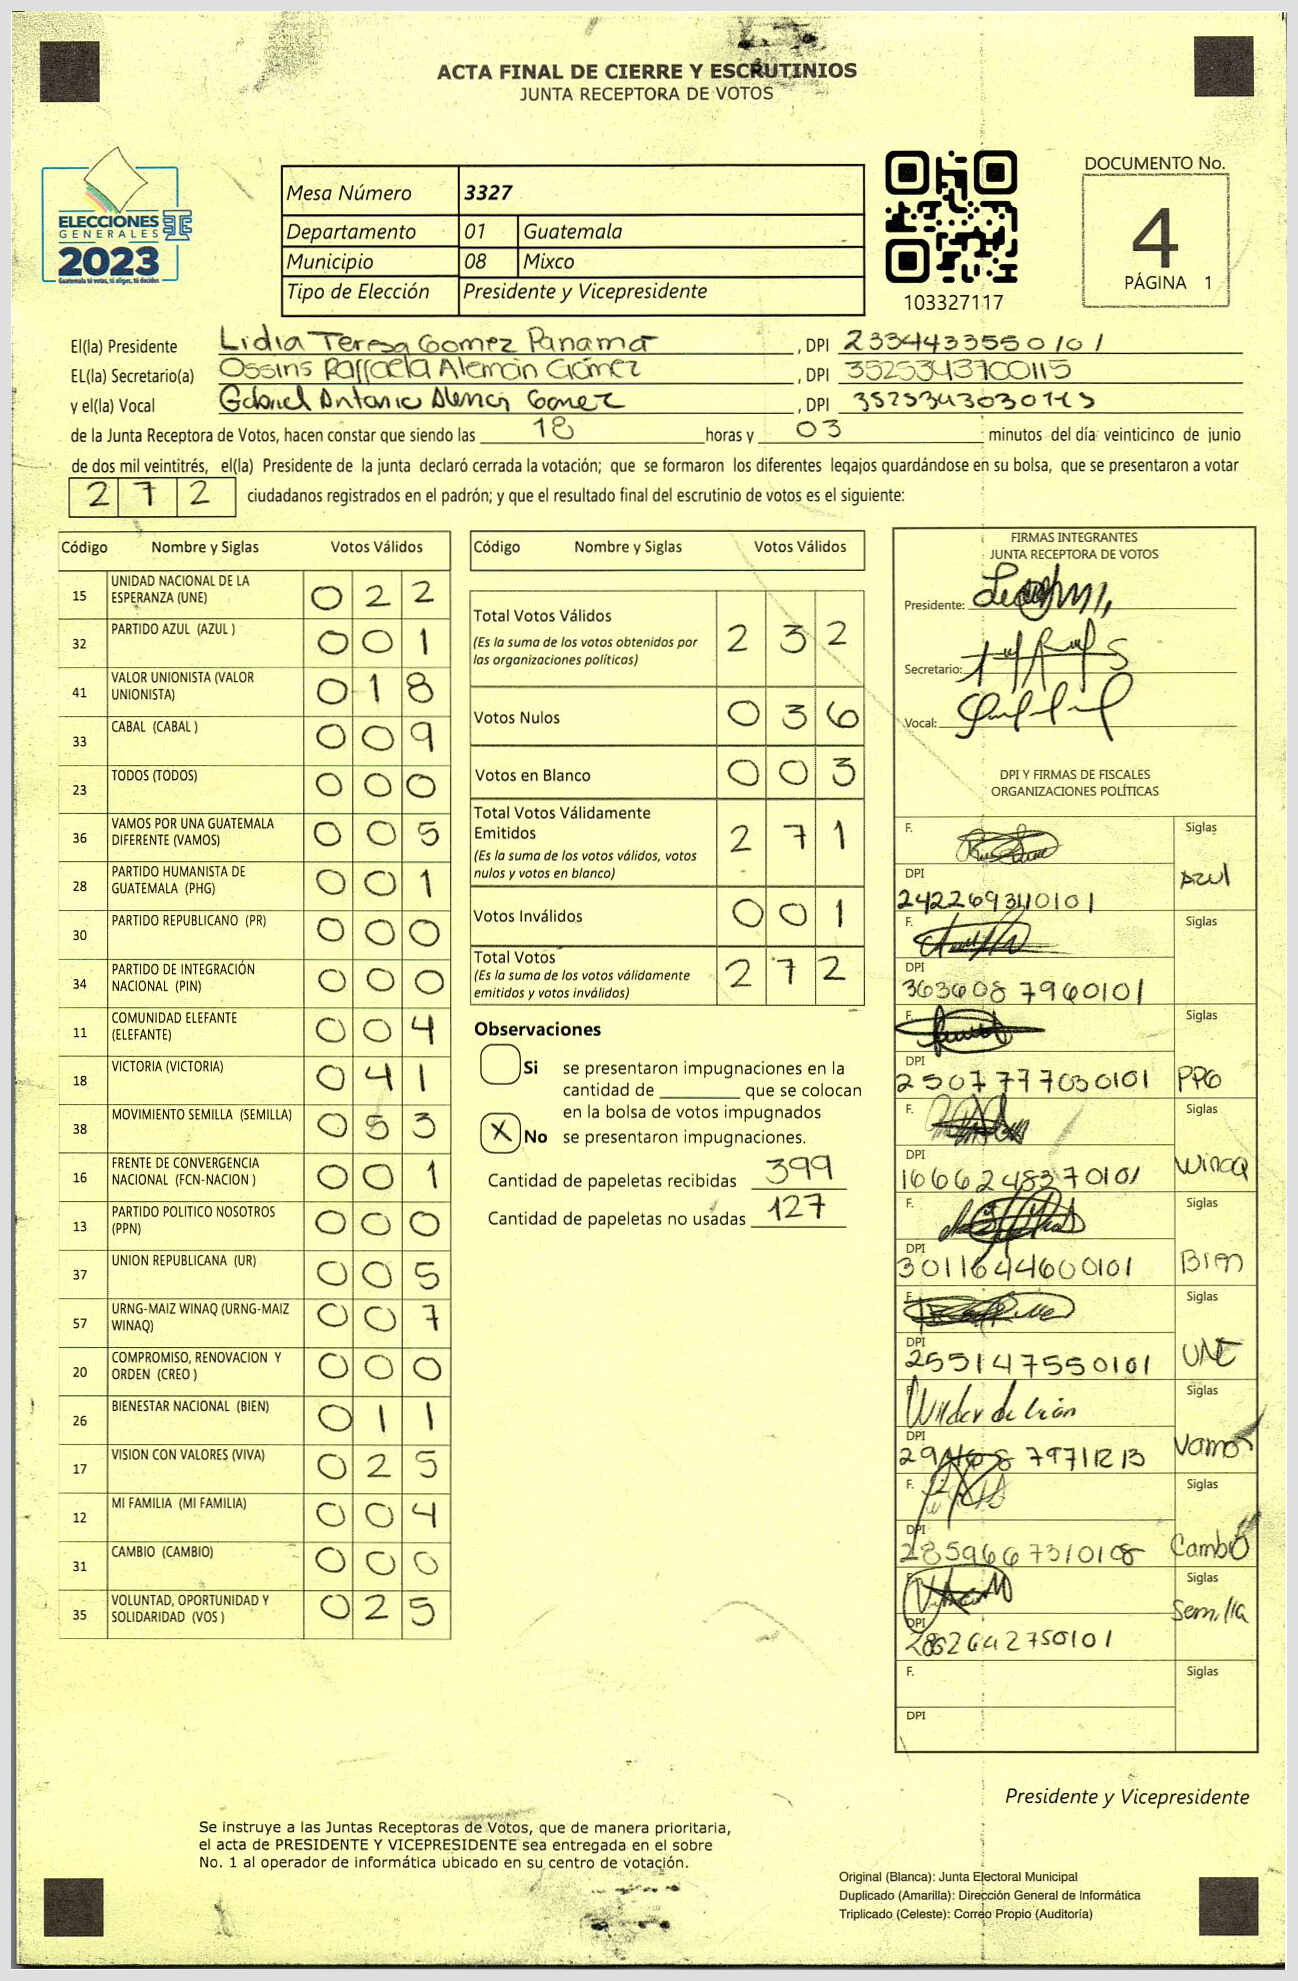 ACTA FINAL DE CIERRE Y ESCRUTINIOS
JUNTA RECEPTORA DE VOTOS
ELECCIONES
GENERALES
2023
Guatemala tú votas, tú eliges, tú decides
Mesa Número 3327
Departamento 01 Guatemala
Municipio 08 Mixco
Tipo de Elección Presidente y Vicepresidente
103327117
DOCUMENTO No.
4
PÁGINA 1
El(la) Presidente Lidia Teresa Gomez Panama, DPI 2334433550101
EL(la) Secretario(a) Ossins Raffaela Alemán Gómez, DPI 3525343700115
y el(la) Vocal Gabriel Antonio Aleman Gomez, DPI
de la Junta Receptora de Votos, hacen constar que siendo las 18 horas y 03 minutos del día veinticinco de junio
de dos mil veintitrés, el(la) Presidente de la junta declaró cerrada la votación; que se formaron los diferentes legajos guardándose en su bolsa, que se presentaron a votar
272 ciudadanos registrados en el padrón; y que el resultado final del escrutinio de votos es el siguiente:
Código Nombre y Siglas Votos Válidos
15 UNIDAD NACIONAL DE LA ESPERANZA (UNE) 022
32 PARTIDO AZUL (AZUL ) 001
41 VALOR UNIONISTA (VALOR UNIONISTA) 018
33 CABAL (CABAL ) 009
23 TODOS (TODOS) 000
36 VAMOS POR UNA GUATEMALA DIFERENTE (VAMOS) 005
28 PARTIDO HUMANISTA DE GUATEMALA (PHG) 001
30 PARTIDO REPUBLICANO (PR) 000
34 PARTIDO DE INTEGRACIÓN NACIONAL (PIN) 000
11 COMUNIDAD ELEFANTE (ELEFANTE) 004
18 VICTORIA (VICTORIA) 041
38 MOVIMIENTO SEMILLA (SEMILLA) 053
16 FRENTE DE CONVERGENCIA NACIONAL (FCN-NACION ) 001
13 PARTIDO POLITICO NOSOTROS (PPN) 000
37 UNION REPUBLICANA (UR) 005
57 URNG-MAIZ WINAQ (URNG-MAIZ WINAQ) 007
20 COMPROMISO, RENOVACION Y ORDEN (CREO ) 000
26 BIENESTAR NACIONAL (BIEN) 011
17 VISION CON VALORES (VIVA) 025
12 MI FAMILIA (MI FAMILIA) 004
31 CAMBIO (CAMBIO) 000
35 VOLUNTAD, OPORTUNIDAD Y SOLIDARIDAD (VOS ) 025
Código Nombre y Siglas Votos Válidos
Total Votos Válidos 232
(Es la suma de los votos obtenidos por
las organizaciones políticas)
Votos Nulos 036
Votos en Blanco 003
Total Votos Válidamente
Emitidos 271
(Es la suma de los votos válidos, votos
nulos y votos en blanco)
Votos Inválidos 001
Total Votos 272
(Es la suma de los votos válidamente
emitidos y votos inválidos)
Observaciones
Si se presentaron impugnaciones en la
cantidad de ________ que se colocan
en la bolsa de votos impugnados
X No se presentaron impugnaciones.
Cantidad de papeletas recibidas 399
Cantidad de papeletas no usadas 127
FIRMAS INTEGRANTES
JUNTA RECEPTORA DE VOTOS
Presidente:
Secretario:
Vocal:
DPI Y FIRMAS DE FISCALES
ORGANIZACIONES POLÍTICAS
F. Siglas
DPI Azul
F. Siglas
DPI 3636087960101
F. Siglas
DPI 2507777030101 PPG
F. Siglas
DPI 1666248370101 Winaq
F. Siglas
DPI 3011644600101 Bien
F. Siglas
DPI 2551147550101 UNE
F. Wilder de León Siglas
DPI Vamos
F. Siglas
DPI 2859667310108 Cambio
F. Siglas
DPI Semilla
F. Siglas
DPI
Presidente y Vicepresidente
Se instruye a las Juntas Receptoras de Votos, que de manera prioritaria,
el acta de PRESIDENTE Y VICEPRESIDENTE sea entregada en el sobre
No. 1 al operador de informática ubicado en su centro de votación.
Original (Blanca): Junta Electoral Municipal
Duplicado (Amarilla): Dirección General de Informática
Triplicado (Celeste): Correo Propio (Auditoría)